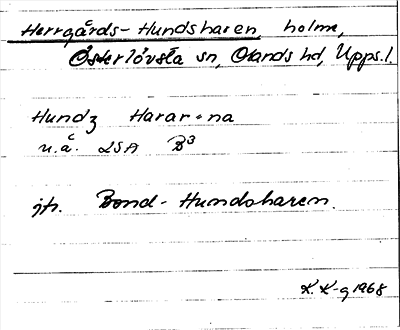 Herrgårds-Hundsharen, holme,
Österlövsta sn, Olands hd, Upps.l.
Hundz Harar⸗na
u.å. LSA B³
jfr. Bond-Hundsharen.
K. K-g 1968